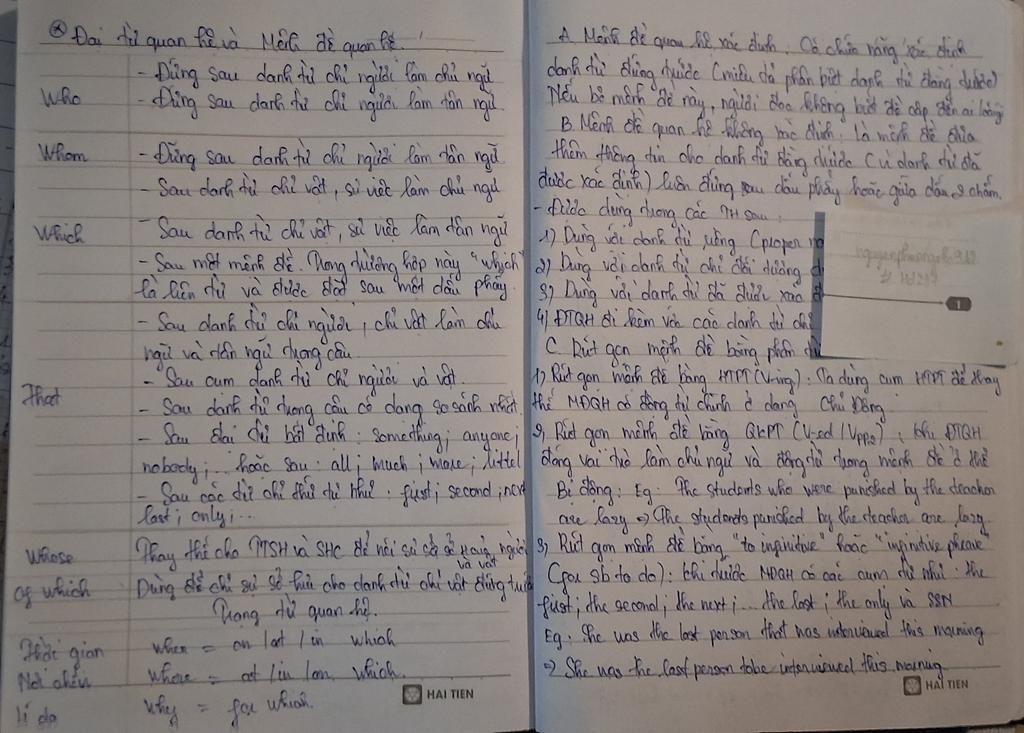 ⊛ Đại từ quan hệ và Mệnh đề quan hệ.
- Đứng sau danh từ chỉ người làm chủ ngữ
Who - Đứng sau danh từ chỉ người làm tân ngữ
Whom - Đứng sau danh từ chỉ người làm tân ngữ
- Sau danh từ chỉ vật, sự việc làm chủ ngữ
Which - Sau danh từ chỉ vật, sự việc làm tân ngữ
- Sau một mệnh đề. Trong trường hợp này "which"
là liên từ và được đặt sau một dấu phẩy.
- Sau danh từ chỉ người, chỉ vật làm chủ
ngữ và tân ngữ trong câu
- Sau cụm danh từ chỉ người và vật.
That - Sau danh từ trong câu có dạng so sánh nhất.
- Sau đại từ bất định: something; anyone;
nobody;... hoặc sau: all; much; more; littel
- Sau các từ chỉ thứ tự như: first; second; next
last; only;...
Whose Thay thế cho TTSH và SHC để nói sự sở hữu người
và vật
Of which Dùng để chỉ sự sở hữu cho danh từ chỉ vật đứng trước
Trạng từ quan hệ.
Thời gian when = on / at / in which
Nơi chốn where = at / in / on which.
Lí do why = for which.
HAI TIEN
A. Mệnh đề quan hệ xác định. Có chức năng xác định
danh từ đứng trước (miêu tả phân biệt danh từ đứng trước)
Nếu bỏ mệnh đề này, người đọc không biết đề cập đến ai
B. Mệnh đề quan hệ không xác định: là mệnh đề đưa
thêm thông tin cho danh từ đằng trước (vì danh từ đã
được xác định) luôn đứng sau dấu phẩy hoặc giữa dấu 2 chấm.
- Được dùng trong các TH sau:
1) Dùng với danh từ riêng (proper
2) Dùng với danh từ chỉ đối tượng
3) Dùng với danh từ đã được xác
1
4) ĐTQH đi kèm với các danh từ chỉ
C. Rút gọn mệnh đề bằng phân
1) Rút gọn mệnh đề bằng HTPT (V-ing): Ta dùng cụm HTPT để thay
thế MĐQH có động từ chính ở dạng Chủ Động
2) Rút gọn mệnh đề bằng QKPT (V-ed / Vpp2): khi ĐTQH
đóng vai trò làm chủ ngữ và động từ trong mệnh đề ở thể
Bị động: Eg: The students who were punished by the teacher
are lazy ⇒ The students punished by the teacher are lazy
3) Rút gọn mệnh đề bằng "to infinitive" hoặc "infinitive phrase"
(for sb to do): khi trước MĐQH có các cụm từ như: the
first; the second; the next;... the last; the only và SSN
Eg: She was the last person that was interviewed this morning
⇒ She was the last person to be interviewed this morning
HAI TIEN